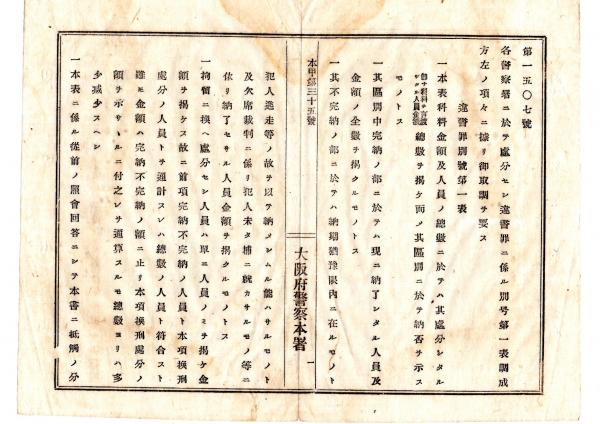 第一五〇七號
各警察署ニ於テ處分セシ違警罪ニ係ル別号第一表調成
方左ノ項々ニ據リ御取調ヲ要ス
違警罪別號第一表
一本表科料金額及人員ノ總數ニ於テハ其處分シタル
總數ヲ揭ケ而メ其區別ニ於テ納否ヲ示ス
モノトス
一其區別中完納ノ部ニ於テハ現ニ納了シタル人員及
金額ノ全數ヲ揭クルモノトス
一其不完納ノ部ニ於テハ納期猶豫限內ニ在ルモノト
本甲第三十五號
大阪府警察本署
一
犯人逃走等ノ故ヲ以テ納メシムル能ハサルモノト
及欠席裁判ニ係リ犯人未タ捕ニ就カサルモノ等ニ
依リ納了セサル人員金額ヲ揭クルモノトス
一拘留ニ換ヘ處分セシ人員ハ單ニ人員ノミヲ揭ケ金
額ヲ揭ケス故ニ前項完納不完納ノ人員ト本項換刑
處分ノ人員トヲ通計スレハ總數ノ人員ト符合スト
雖モ金額ハ完納不完納ノ額ニ止リ本項換刑處分ノ
額ヲ示サヽルニ付之レヲ通算スルモ總數ヨリハ多
少减少スヘシ
一本表ニ係ル從前ノ照會回答ニシテ本書ニ抵觸ノ分